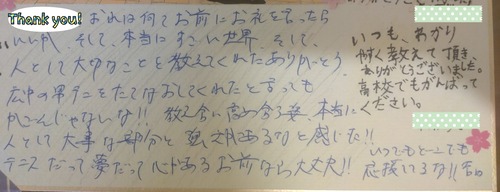 Thank you!
おれは何てお前にお礼を言ったら
いいか、そして、本当にすごい世界、そして、
人として大切なことを教えてくれたありがとう。
広中の男テニをたてなおしてくれたと言っても
かごんじゃないな!! 教え合い高め合う発 本当に
人として大事な部分と 強 あるなと感じた!!
テニスだって夢だって 心があるお前なら大丈夫!!
いつも、わかり
やすく教えて頂き
ありがとうございました。
高校でもがんばって
ください。
いつでもどこでも
応援しるな!!